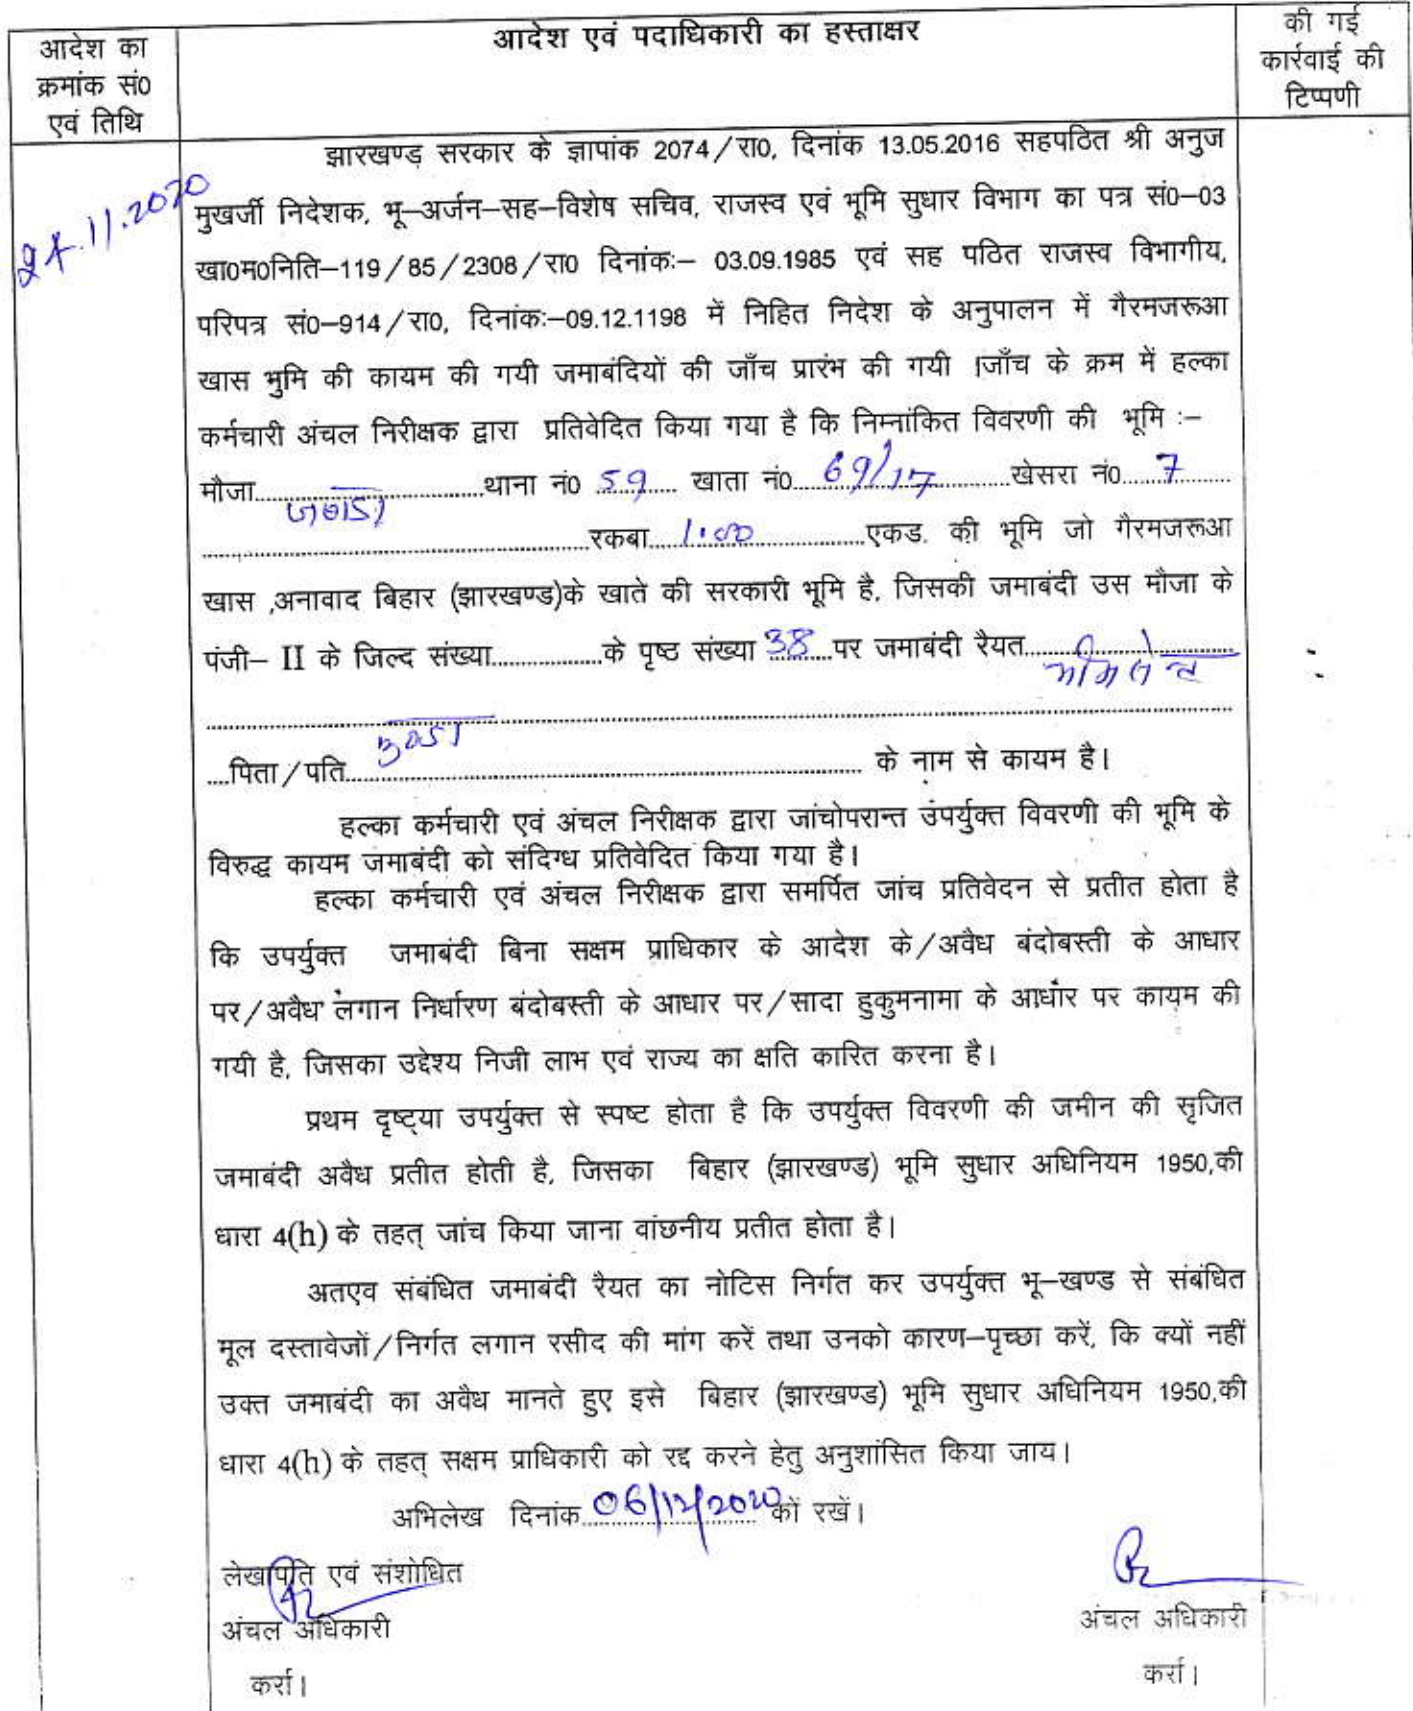 आदेश का
क्रमांक सं0
एवं तिथि
आदेश एवं पदाधिकारी का हस्ताक्षर
की गई
कार्रवाई की
टिप्पणी
24.11.2020
झारखण्ड़ सरकार के ज्ञापांक 2074/रा0, दिनांक 13.05.2016 सहपठित श्री अनुज
मुखर्जी निदेशक, भू–अर्जन–सह–विशेष सचिव, राजस्व एवं भूमि सुधार विभाग का पत्र सं0–03
खा0म0निति–119/85/2308/रा0 दिनांकः– 03.09.1985 एवं सह पठित राजस्व विभागीय,
परिपत्र सं0–914/रा0, दिनांकः–09.12.1198 में निहित निदेश के अनुपालन में गैरमजरूआ
खास भुमि की कायम की गयी जमाबंदियों की जाँच प्रारंभ की गयी ।जाँच के क्रम में हल्का
कर्मचारी अंचल निरीक्षक द्वारा प्रतिवेदित किया गया है कि निम्नांकित विवरणी की भूमि :–
मौजा..........थाना नं0 59 खाता नं0 69/17 खेसरा नं0 7
रकबा 1.00 एकड. की भूमि जो गैरमजरूआ
खास ,अनावाद बिहार (झारखण्ड)के खाते की सरकारी भूमि है, जिसकी जमाबंदी उस मौजा के
पंजी– II के जिल्द संख्या..........के पृष्ठ संख्या 38 पर जमाबंदी रैयत..........
....पिता/पति.......... के नाम से कायम है।
हल्का कर्मचारी एवं अंचल निरीक्षक द्वारा जांचोपरान्त उंपर्युक्त विवरणी की भूमि के
विरुद्ध कायम जमाबंदी को संदिग्ध प्रतिवेदित किया गया है।
हल्का कर्मचारी एवं अंचल निरीक्षक द्वारा समर्पित जांच प्रतिवेदन से प्रतीत होता है
कि उपर्युक्त जमाबंदी बिना सक्षम प्राधिकार के आदेश के/अवैध बंदोबस्ती के आधार
पर/अवैध लगान निर्धारण बंदोबस्ती के आधार पर/सादा हुकुमनामा के आधार पर कायम की
गयी है, जिसका उद्देश्य निजी लाभ एवं राज्य का क्षति कारित करना है।
प्रथम दृष्ट्या उपर्युक्त से स्पष्ट होता है कि उपर्युक्त विवरणी की जमीन की सृजित
जमाबंदी अवैध प्रतीत होती है, जिसका बिहार (झारखण्ड) भूमि सुधार अधिनियम 1950,की
धारा 4(h) के तहत् जांच किया जाना वांछनीय प्रतीत होता है।
अतएव संबंधित जमाबंदी रैयत का नोटिस निर्गत कर उपर्युक्त भू–खण्ड से संबंधित
मूल दस्तावेजों/निर्गत लगान रसीद की मांग करें तथा उनको कारण–पृच्छा करें, कि क्यों नहीं
उक्त जमाबंदी का अवैध मानते हुए इसे बिहार (झारखण्ड) भूमि सुधार अधिनियम 1950,की
धारा 4(h) के तहत् सक्षम प्राधिकारी को रद्द करने हेतु अनुशांसित किया जाय।
अभिलेख दिनांक 06/12/2020 कों रखें।
लेखापति एवं संशोधित
अंचल अधिकारी
कर्रा।
अंचल अधिकारी
कर्रा।